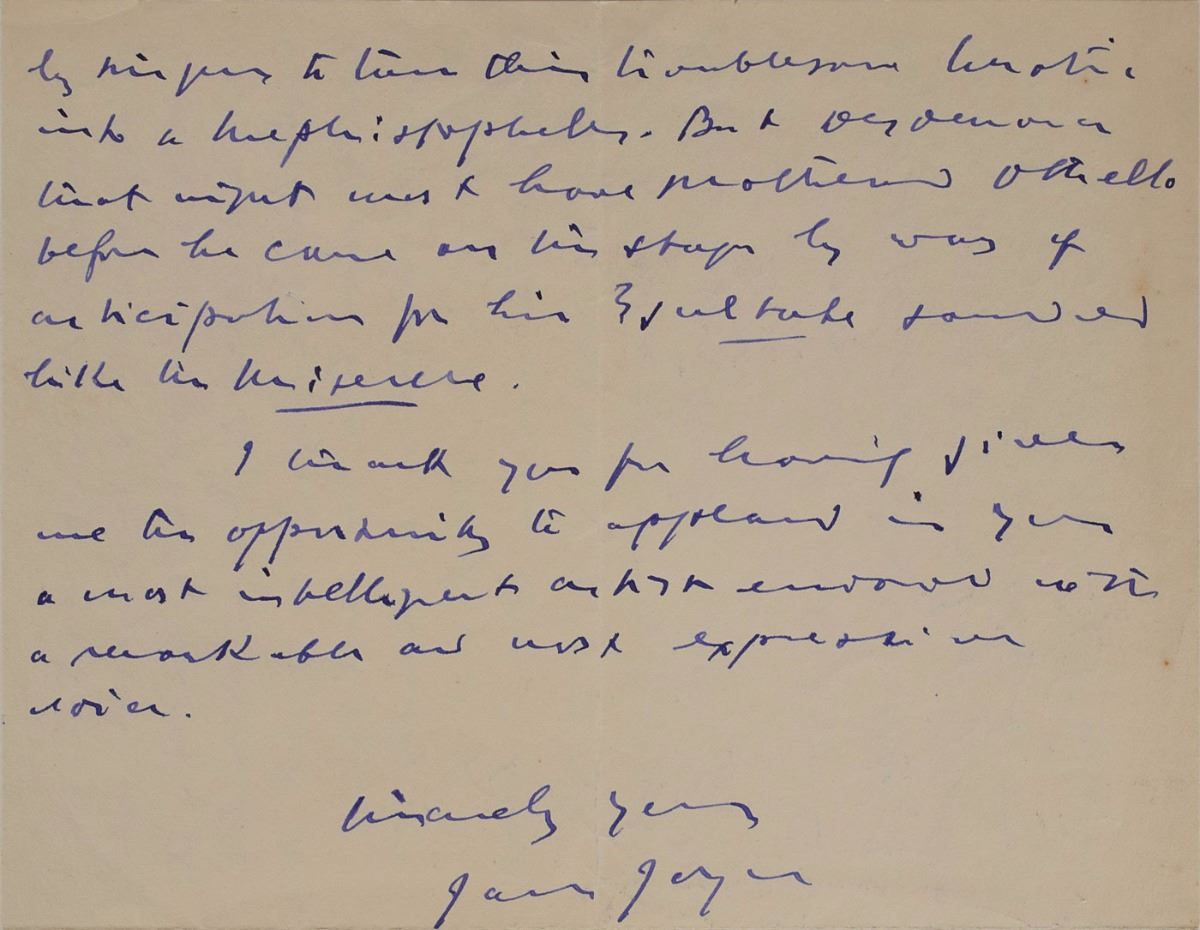 by singers to turn this troublesome lunatic
into a Mephistopheles. But Desdemona
that night must have smothered Othello
before he came on the stage by way of
anticipation for his Esultate sounded
like the Miserere.
I thank you for having given
me the opportunity to applaud in you
a most intelligent artist endowed with
a remarkable and most expressive
voice.
Sincerely yours
James Joyce